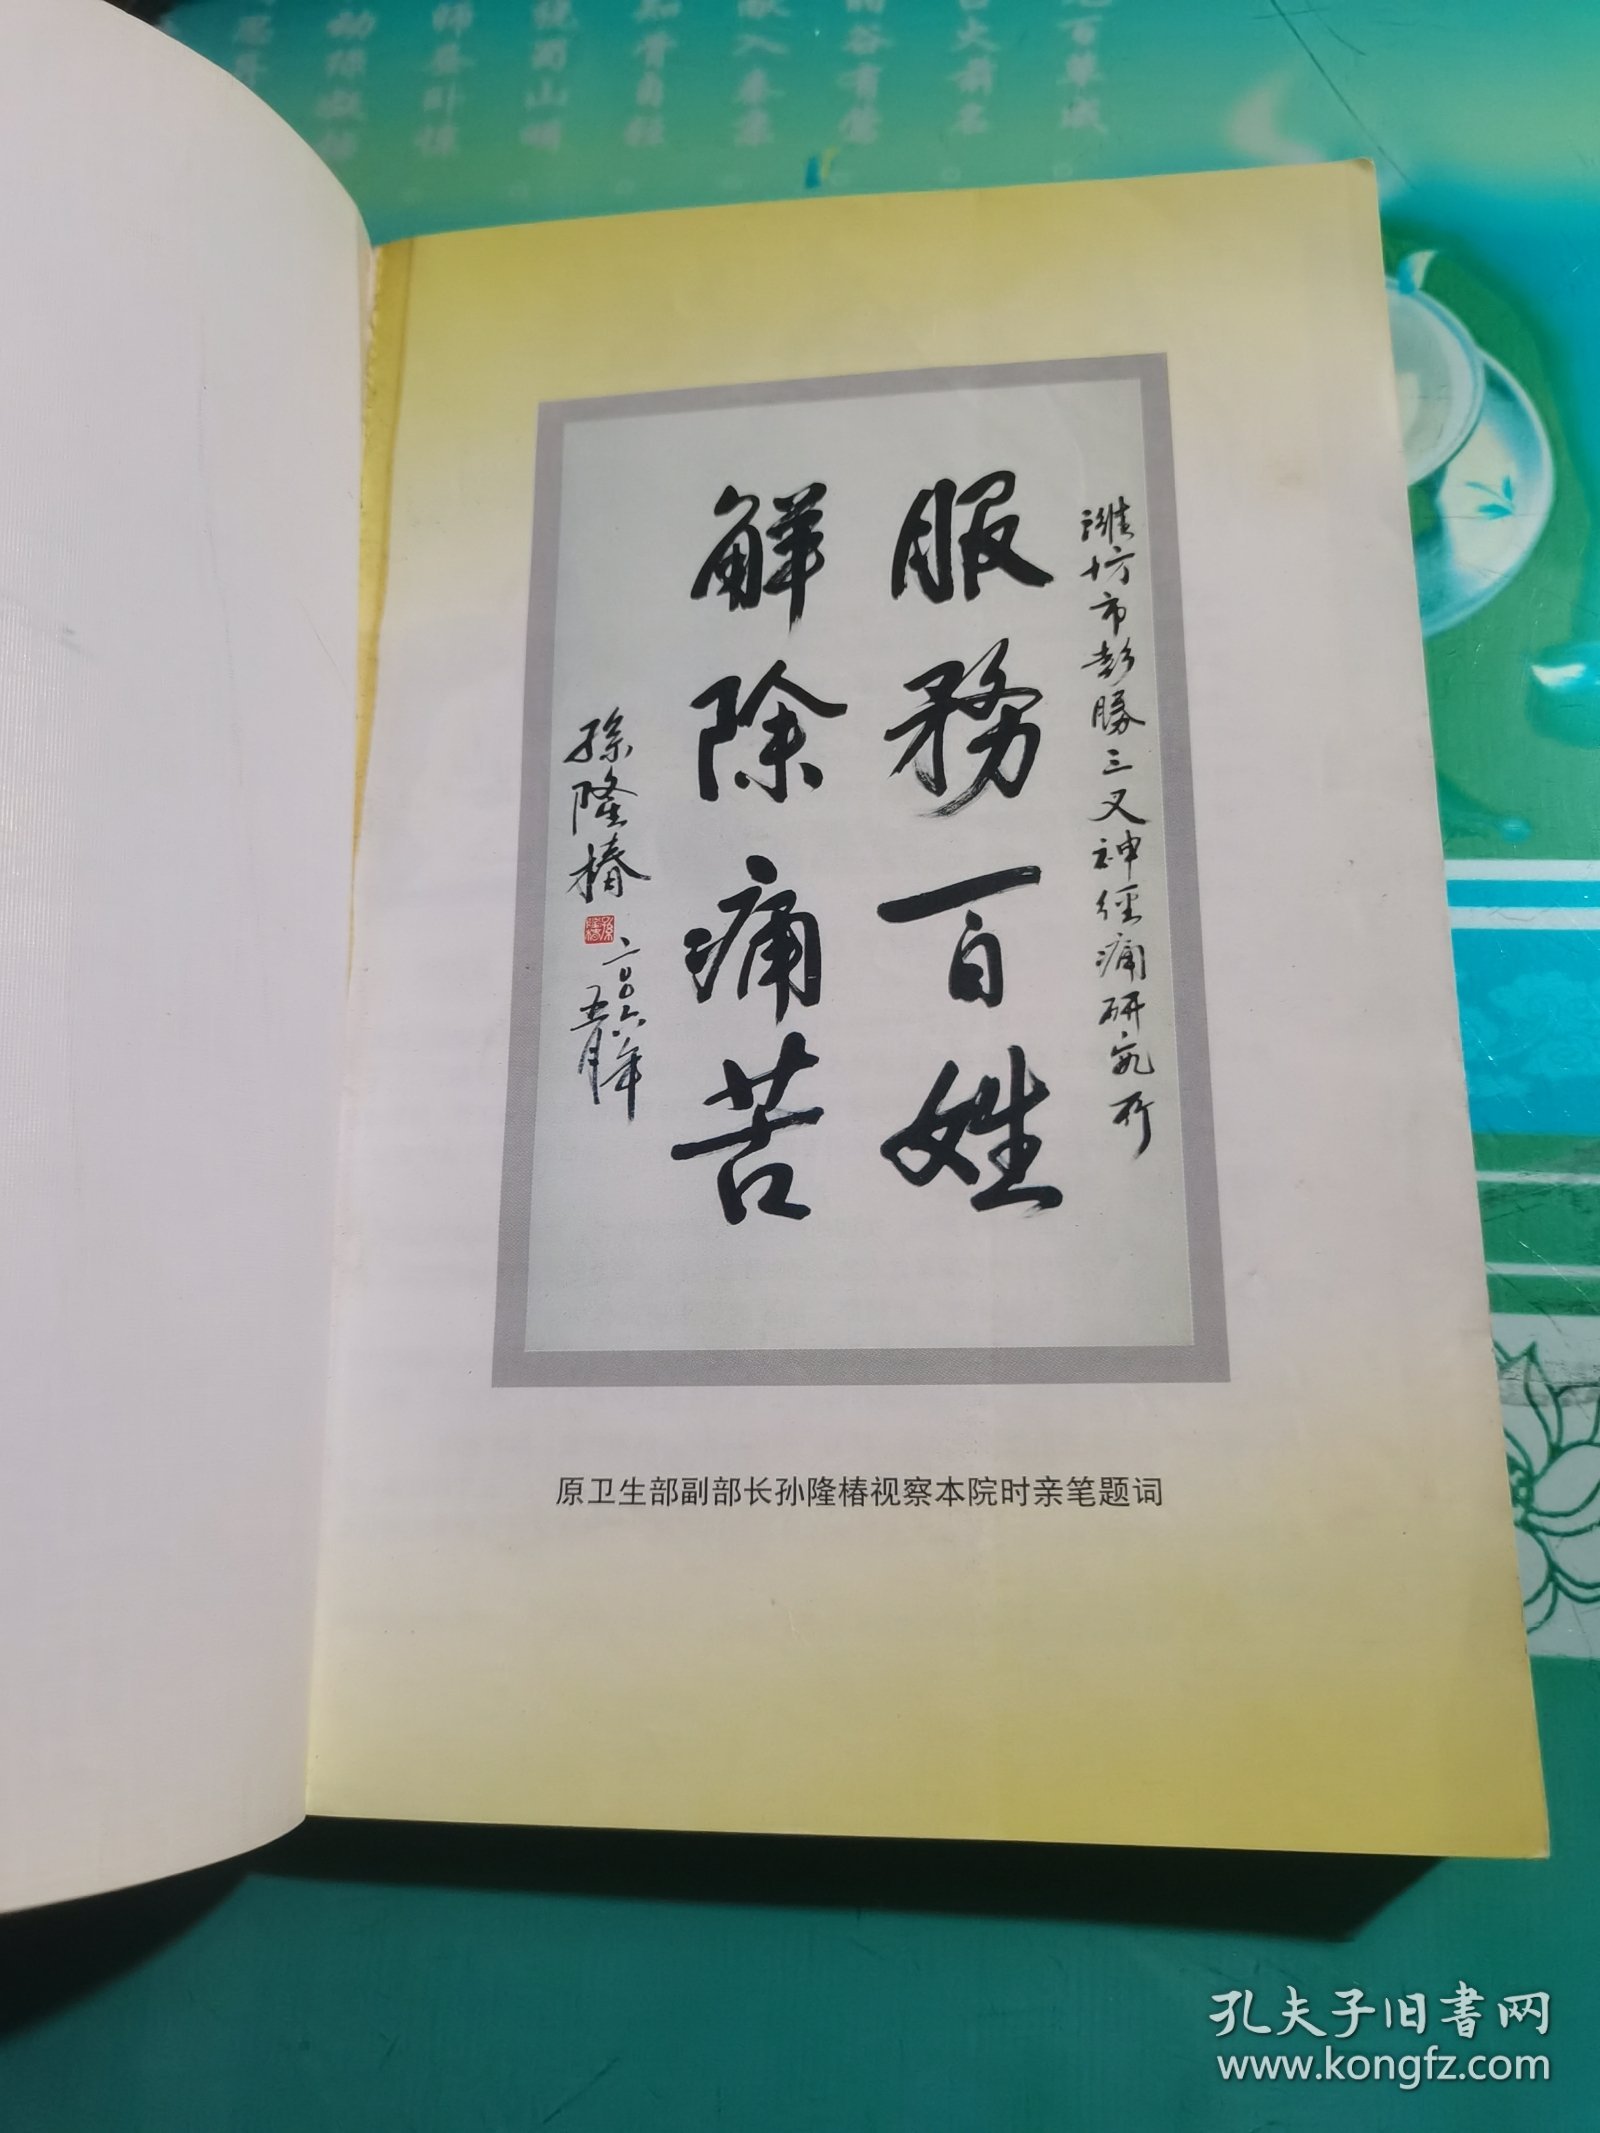 潍坊市彭勝三叉神经痛研究所
服務百姓
解除痛苦
孫隆椿
二〇〇六年
五月
原卫生部副部长孙隆椿视察本院时亲笔题词
孔夫子旧书网
www.kongfz.com